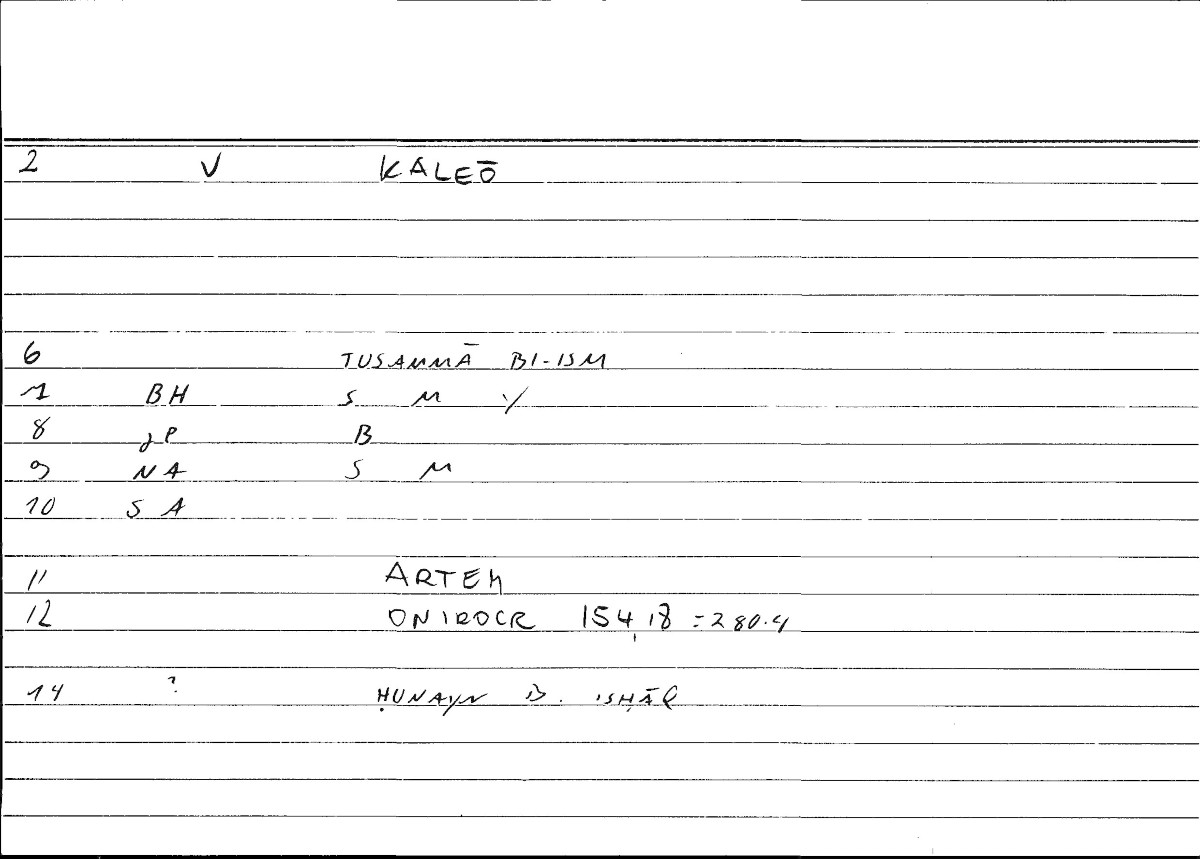 2 V KALEŌ
6 TUSAMMĀ BI-ISM
7 BH S M Y
8 JP B
9 NA S M
10 S A
11 ARTEM
12 ONIROCR 154,18 = 280.4
14 ? ḤUNAYN B. ISḤĀQ